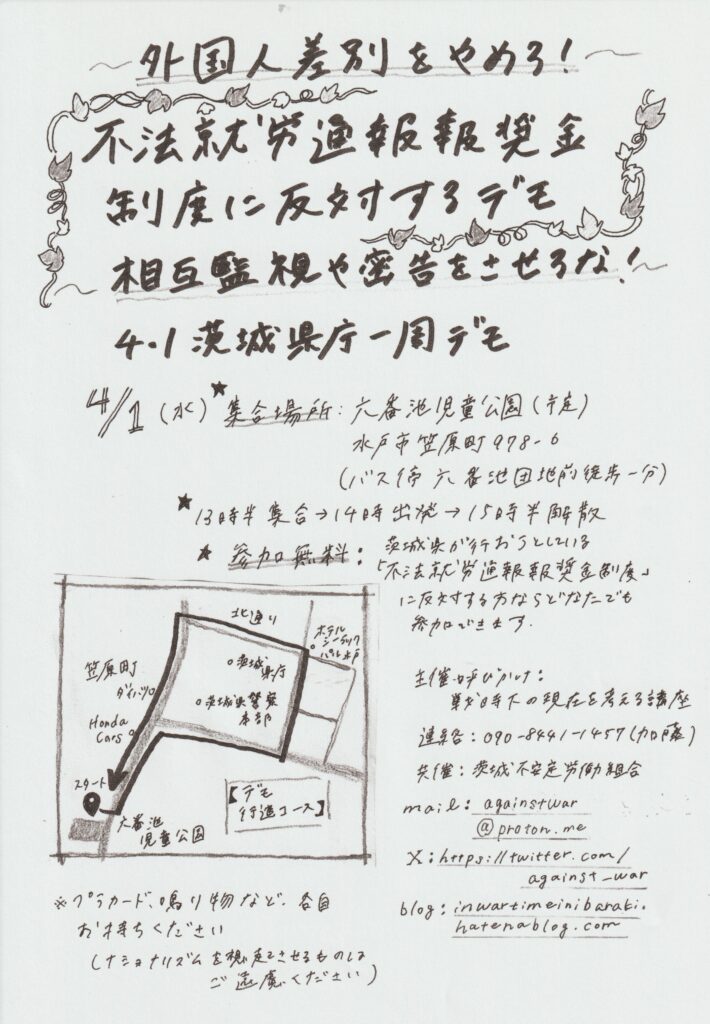 ~外国人差別をやめろ!~
不法就労通報報奨金
制度に反対するデモ
相互監視や密告をさせるな!~
4.1 茨城県庁一周デモ
4/1(水)★集合場所:六番池児童公園(予定)
水戸市笠原町978-6
(バス停 六番池団地前徒歩一分)
★13時半集合→14時出発→15時半解散
★参加無料:茨城県が行おうとしている
「不法就労通報報奨金制度」
に反対する方ならどなたでも
参加できます
北通り
ホテル
シーラック
パル水戸
笠原町
ダイハツ
茨城
県庁
茨城県警察
本部
Honda
Cars
スタート
六番池
児童公園
【デモ
行進コース】
主催・呼びかけ:
戦時下の現在を考える講座
連絡:090-8441-1457(加藤)
共催:茨城不安定労働組合
mail: againstwar
@proton.me
X:https://twitter.com/
against_war
blog: inwartimeinibaraki.
hatenablog.com
※プラカード、鳴り物など、各自
お持ちください
(ナショナリズムを想起させるものは
ご遠慮ください)